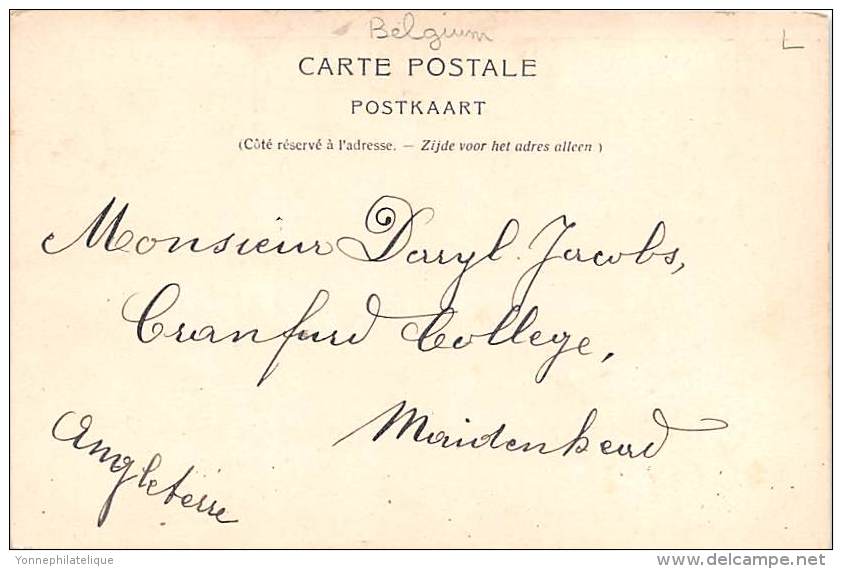 Belgium
L
CARTE POSTALE
POSTKAART
(Côté réservé à l'adresse. — Zijde voor het adres alleen)
Monsieur Daryl Jacobs,
Cranfurd College,
Maidenhead
Angleterre
Yonnephilatelique
www.delcampe.net